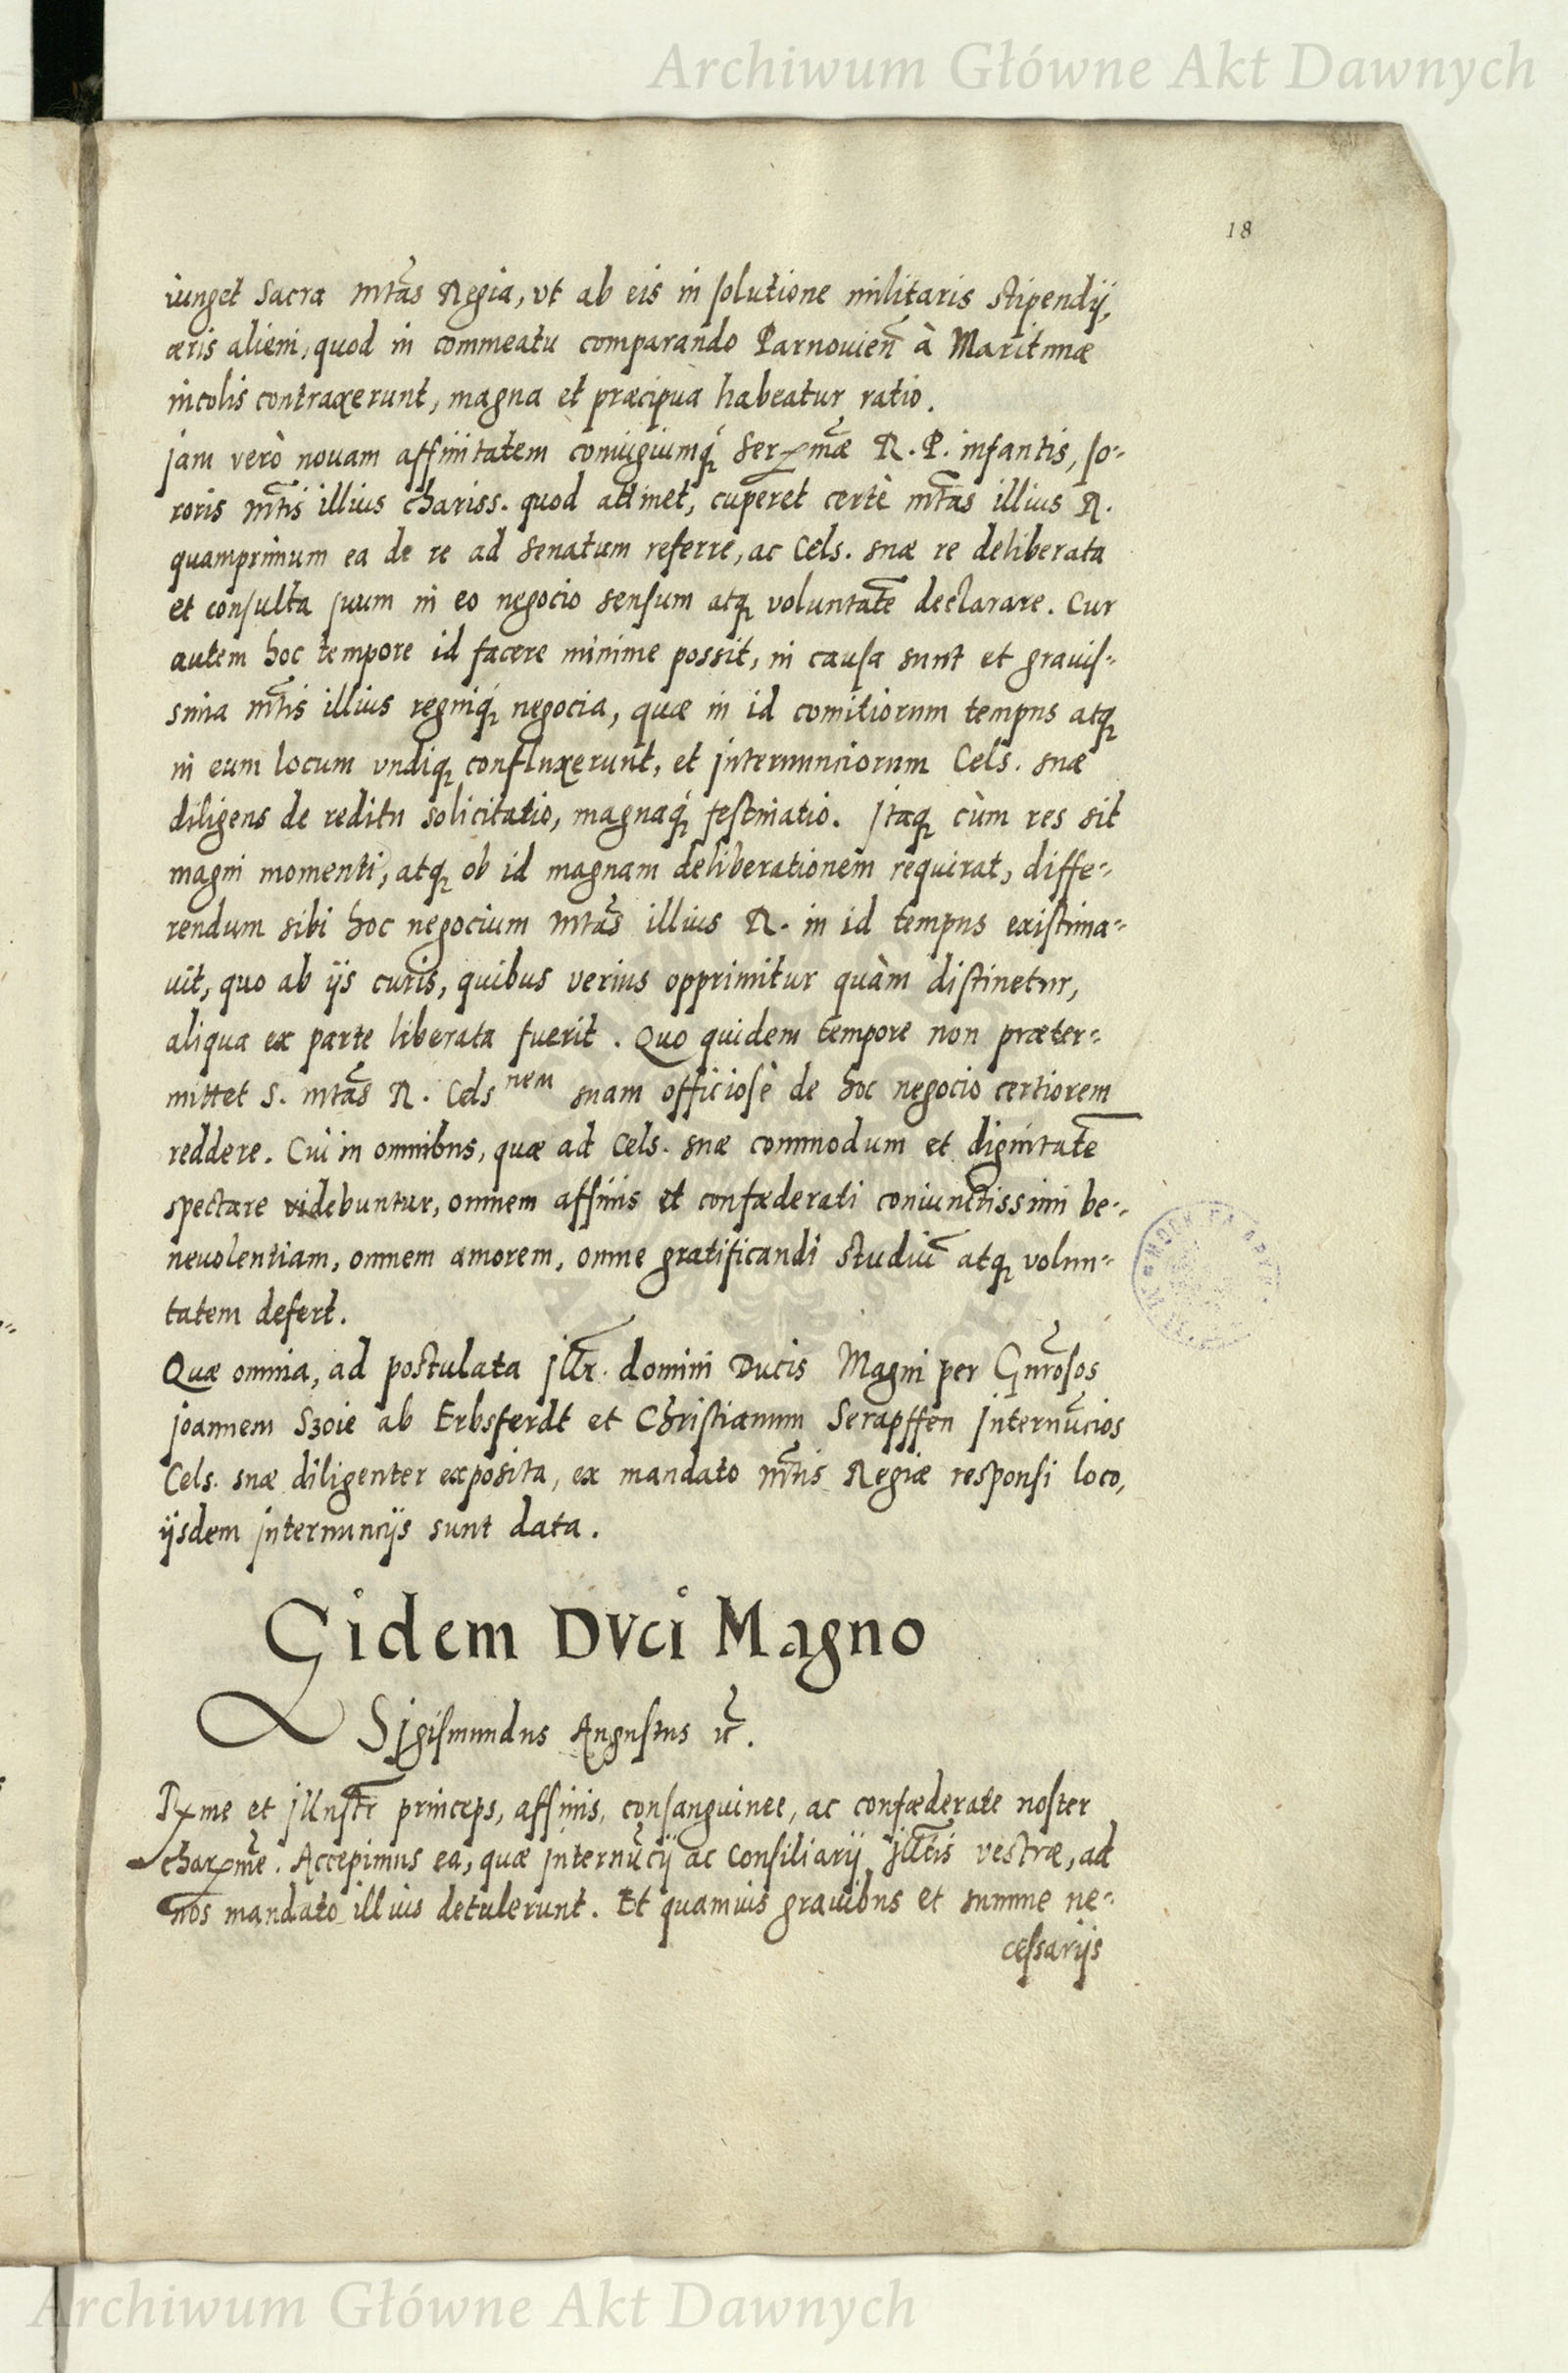 Archiwum Główne Akt Dawnych
18
iunget Sacra Mtãs Regia, vt ab eis in solutione militaris stipendij,
æris alieni, quod in commeatu comparando Parnouieñ à Maritimæ
incolis contraxerunt, magna et præcipua habeatur ratio.
Jam verò nouam affinitatem coniugiumq́ꝫ Serꝑm̃æ R. P. infantis, so-
roris Mt̃is illius chariss. quod attinet, cuperet certè Mt̃as illius R.
quamprimum ea de re ad Senatum referre, ac Cels. suæ re deliberata
et consulta suum in eo negocio sensum atqꝫ voluntatẽ declarare. Cur
autem hoc tempore id facere minime possit, in causa sunt et grauis-
sima Mt̃is illius regniq́ꝫ negocia, quæ in id comitiorum tempus atqꝫ
in eum locum vndiqꝫ confluxerunt, et internunciorum Cels. suæ
diligens de reditu solicitatio, magnaq́ꝫ festinatio. Itaqꝫ cùm res sit
magni momenti, atqꝫ ob id magnam deliberationem requirat, diffe-
rendum sibi hoc negocium Mtãs illius R. in id tempus existima-
uit, quo ab ijs curis, quibus verius opprimitur quàm distinetur,
aliqua ex parte liberata fuerit. Quo quidem tempore non præter-
mittet S. Mtãs R. Cels nem suam officiosè de hoc negocio certiorem
reddere. Cui in omnibus, quæ ad Cels. suæ commodum et dignitatẽ
spectare videbuntur, omnem affinis et confæderati coniunctissimi be-
neuolentiam, omnem amorem, omne gratificandi studiũ atqꝫ volun-
tatem defert.
Quæ omnia, ad postulata Jllr̃. domini Ducis Magni per Gnr̃osos
Joannem Szoie ab Erbsferdt et Christianum Serapffen Internũcios
Cels. suæ diligenter exposita, ex mandato Mt̃is Regiæ responsi loco,
ijsdem internuncijs sunt data.
Eidem DVci Magno
Sigismundus Augustus ꝛc̃.
Rꝑme et Jllustr̃ princeps, affinis, consanguinee, ac confæderate noster
charꝑm̃e. Accepimus ea, quæ internũcij ac Consiliarij Jllt̃is vestræ, ad
nos mandato illius detulerunt. Et quamuis grauibus et summe ne-
cessarijs
Archiwum Główne Akt Dawnych